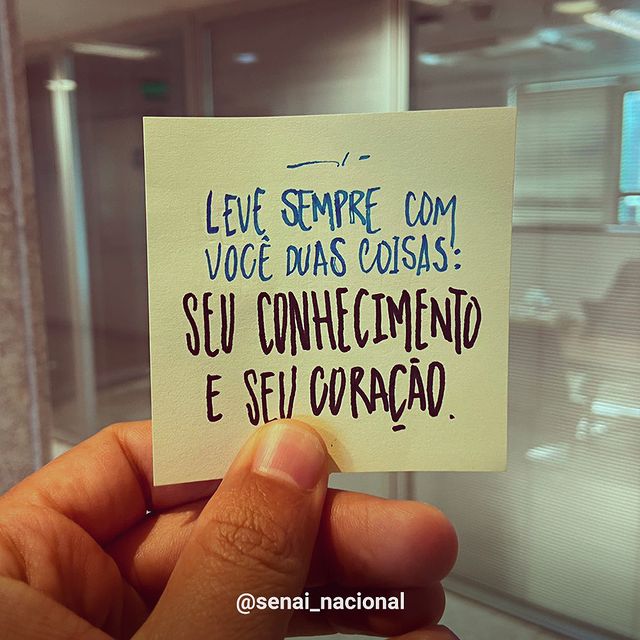 LEVE SEMPRE COM
VOCÊ DUAS COISAS:
SEU CONHECIMENTO
E SEU CORAÇÃO.
@senai_nacional